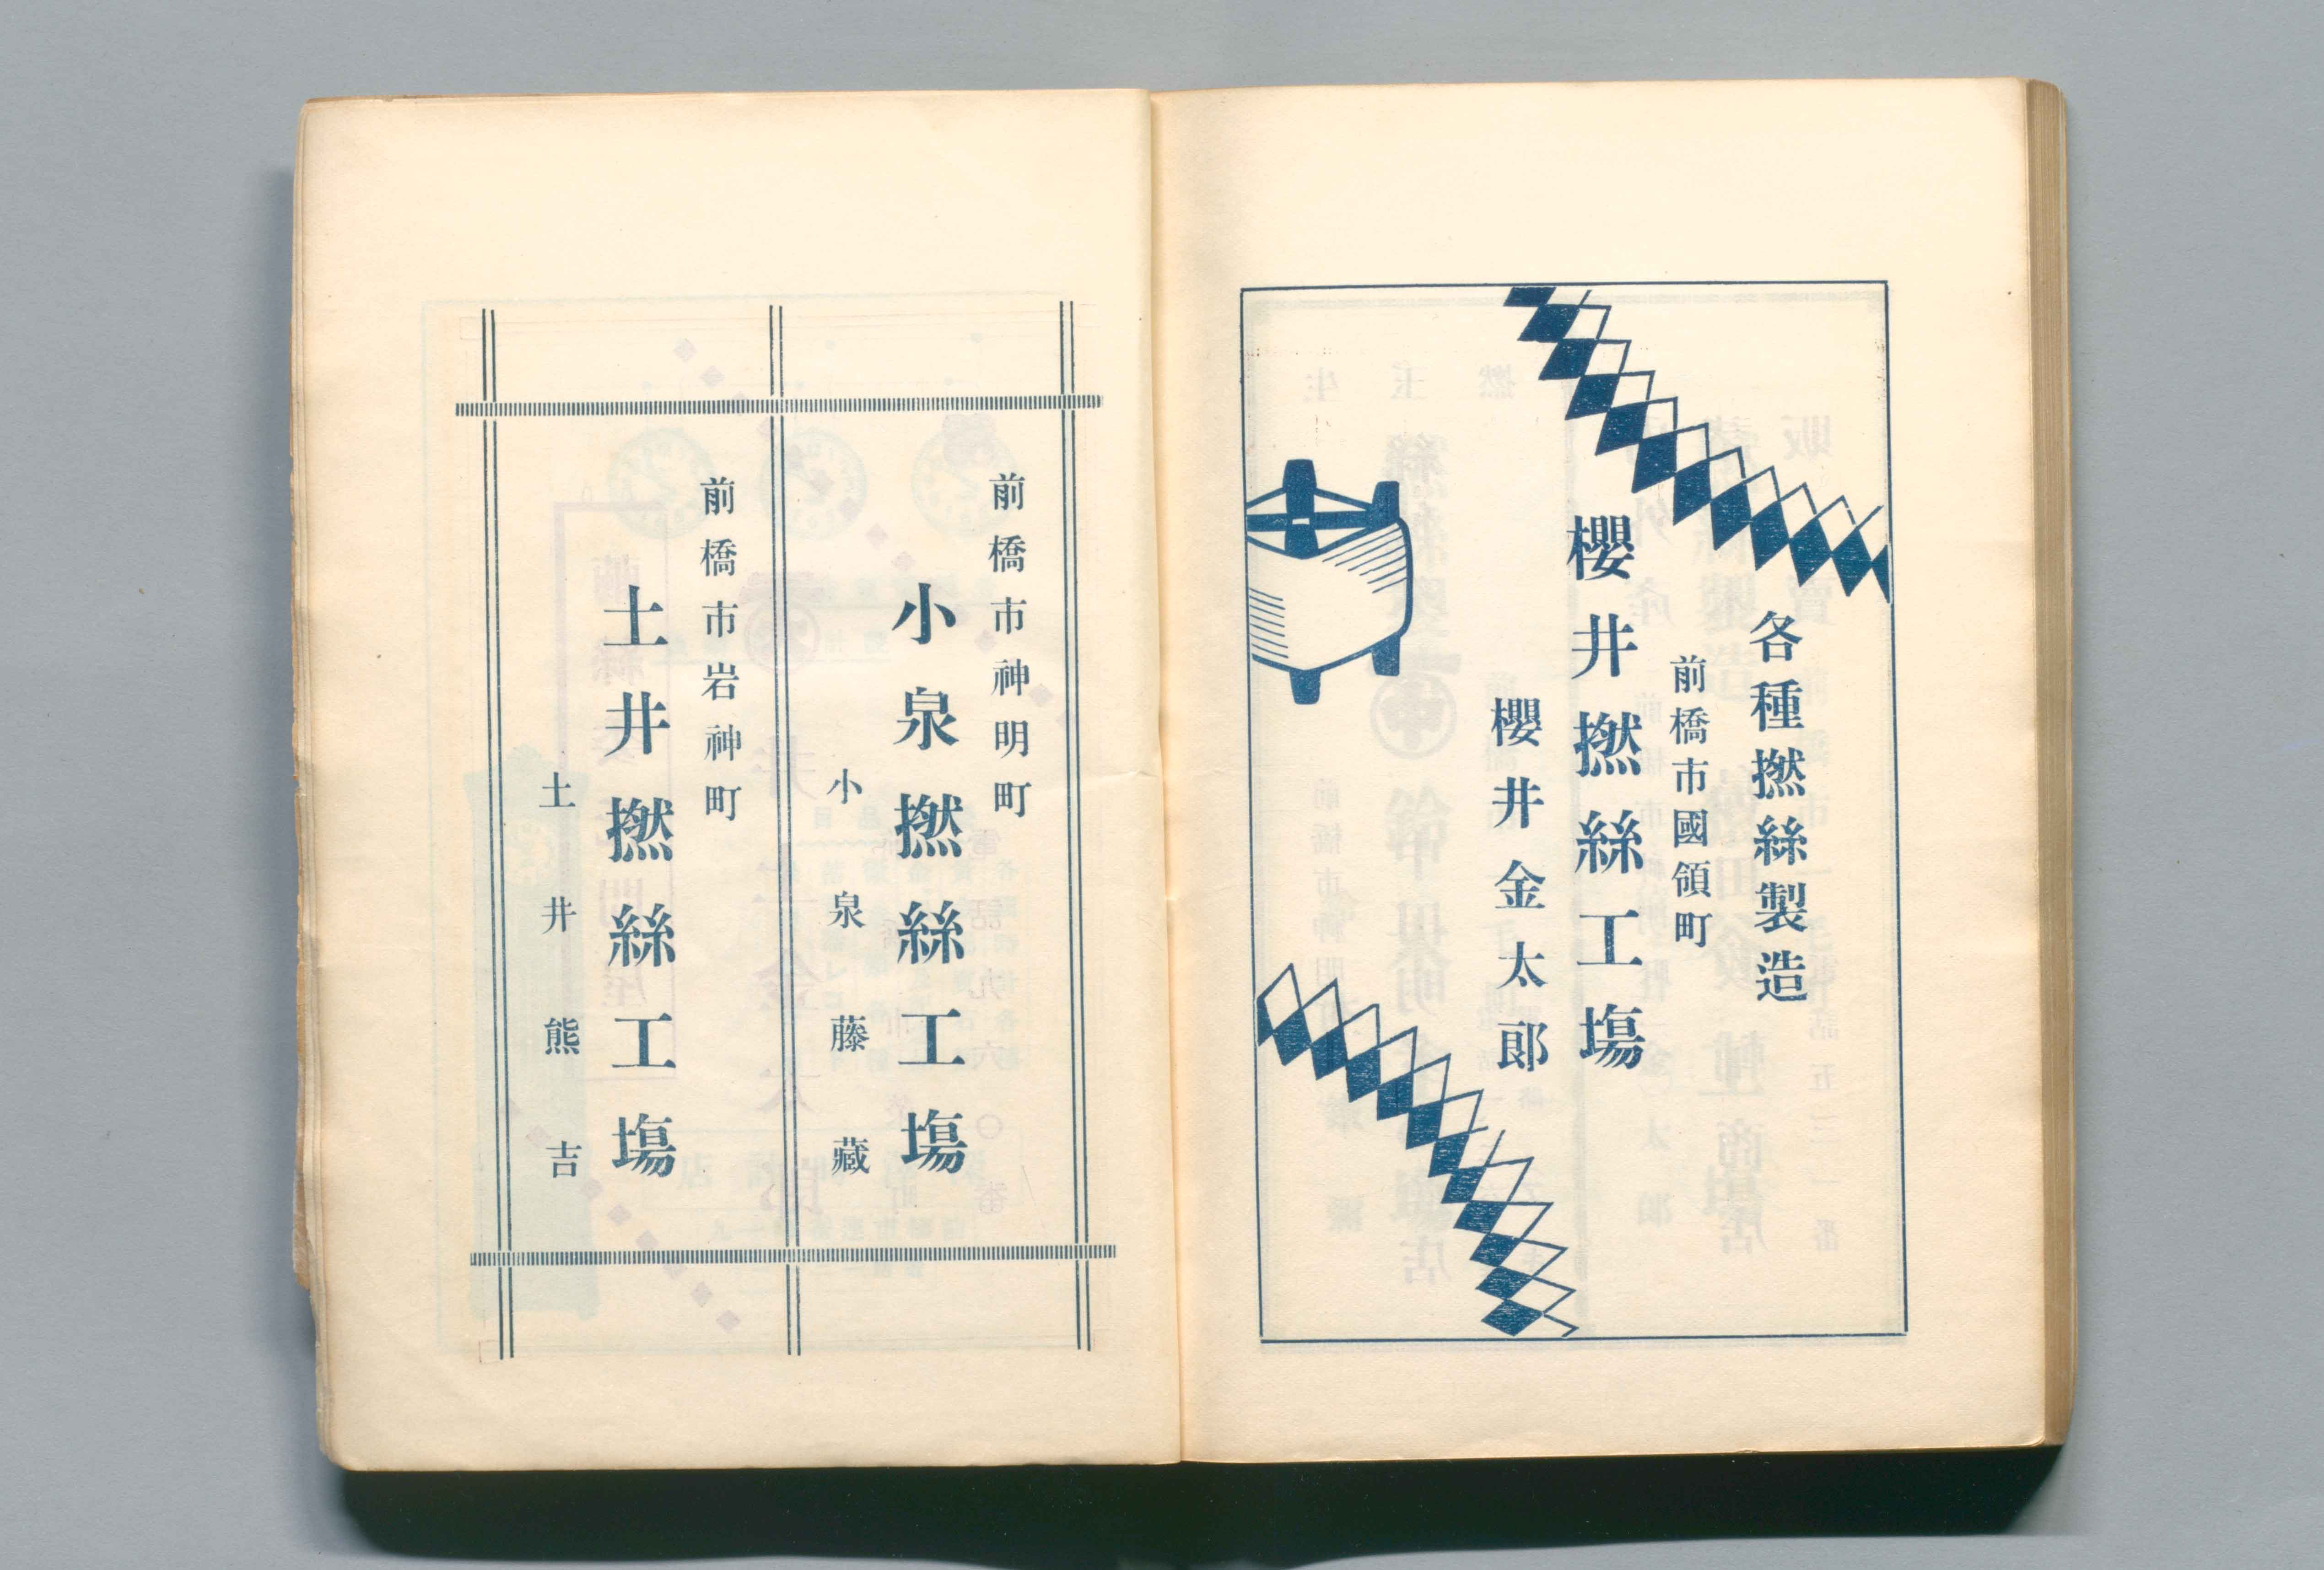 各種撚絲製造
前橋市國領町
櫻井撚絲工塲
櫻井金太郞
前橋市神明町
小泉撚絲工塲
小泉藤藏
前橋市岩神町
土井撚絲工塲
土井熊吉